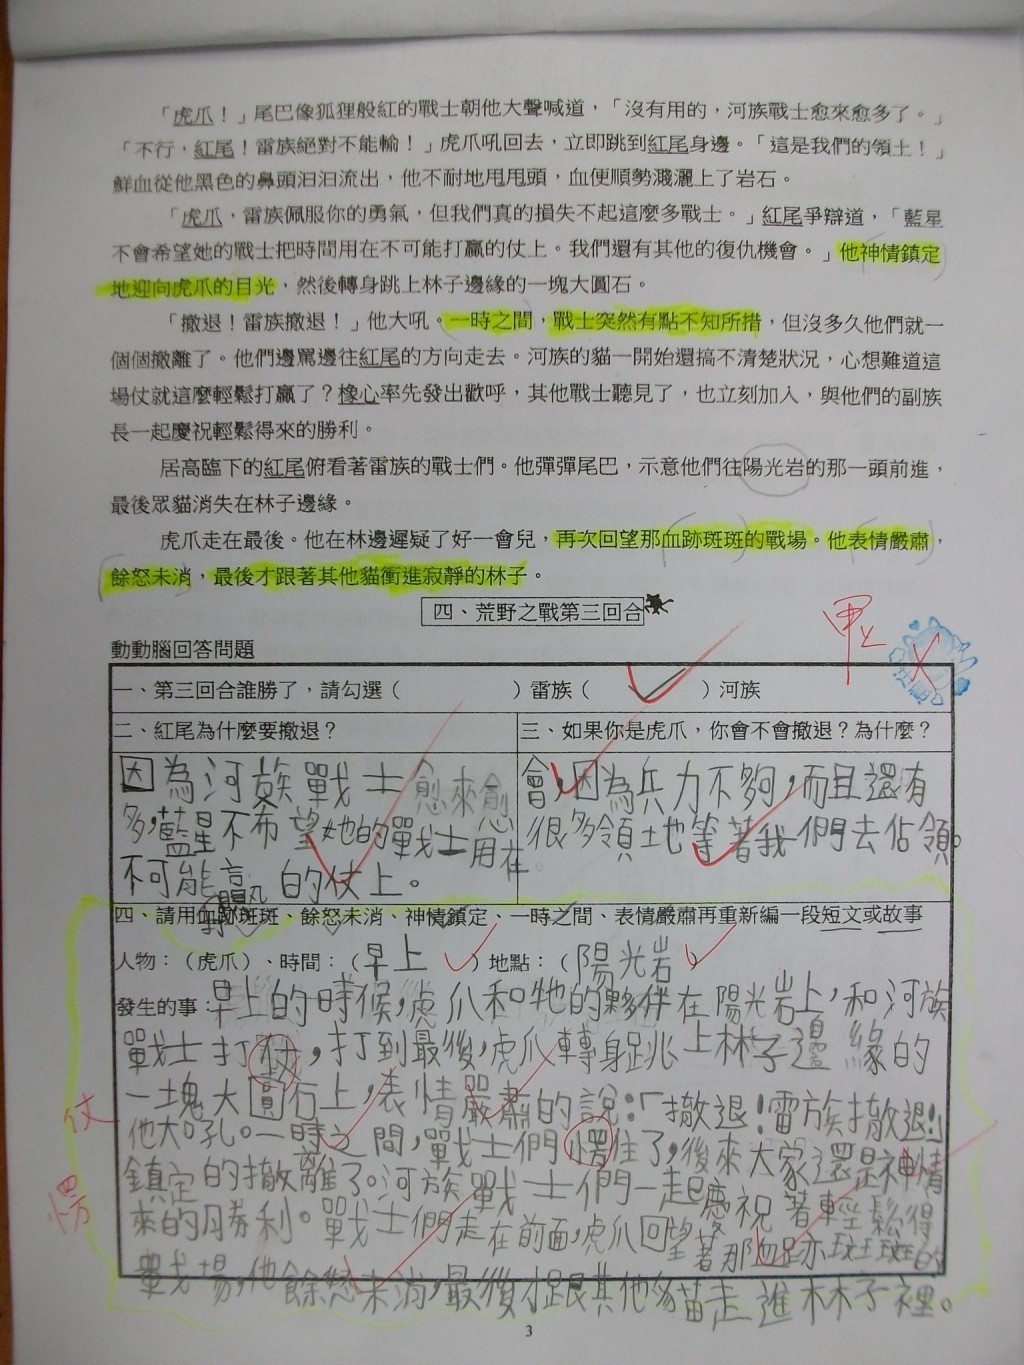 「虎爪！」尾巴像狐狸般紅的戰士朝他大聲喊道，「沒有用的，河族戰士愈來愈多了。」
「不行，紅尾！雷族絕對不能輸！」虎爪吼回去，立即跳到紅尾身邊。「這是我們的領土！」
鮮血從他黑色的鼻頭汩汩流出，他不耐地甩甩頭，血便順勢濺灑上了岩石。
「虎爪，雷族佩服你的勇氣，但我們真的損失不起這麼多戰士。」紅尾爭辯道，「藍星
不會希望她的戰士把時間用在不可能打贏的仗上。我們還有其他的復仇機會。」他神情鎮定
地迎向虎爪的目光，然後轉身跳上林子邊緣的一塊大圓石。
「撤退！雷族撤退！」他大吼。一時之間，戰士突然有點不知所措，但沒多久他們就一
個個撤離了。他們邊罵邊往紅尾的方向走去。河族的貓一開始還搞不清楚狀況，心想難道這
場仗就這麼輕鬆打贏了？橡心率先發出歡呼，其他戰士聽見了，也立刻加入，與他們的副族
長一起慶祝輕鬆得來的勝利。
居高臨下的紅尾俯看著雷族的戰士們。他彈彈尾巴，示意他們往陽光岩的那一頭前進，
最後眾貓消失在林子邊緣。
虎爪走在最後。他在林邊遲疑了好一會兒，再次回望那血跡斑斑的戰場。他表情嚴肅，
餘怒未消，最後才跟著其他貓衝進寂靜的林子。
四、荒野之戰第三回合
甲上
動動腦回答問題
一、第三回合誰勝了，請勾選（ ）雷族（ ✓ ）河族
二、紅尾為什麼要撤退？
因為河族戰士愈來愈
多，藍星不希望她的戰士用在
不可能贏的仗上。
三、如果你是虎爪，你會不會撤退？為什麼？
會，因為兵力不夠，而且還有
很多領土地等著我們去佔領。
四、請用血跡斑斑、餘怒未消、神情鎮定、一時之間、表情嚴肅再重新編一段短文或故事
人物：（虎爪）、時間：（早上）地點：（陽光岩）
發生的事：早上的時候，虎爪和牠的夥伴在陽光岩上，和河族
戰士打仗，打到最後，虎爪轉身跳上林子邊緣的
一塊大圓石上，表情嚴肅的說：「撤退！雷族撤退！」
仗
他大吼。一時之間，戰士們愣住了，後來大家還是神情
鎮定的撤離了。河族戰士們一起慶祝著輕鬆得
愣
來的勝利。戰士們走在前面，虎爪回望著那血跡斑斑的
戰場，他餘怒未消，最後才跟其他貓走進林子裡。
3